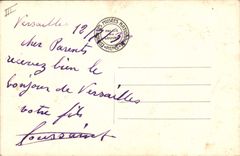 III
Versailles 12/
Mes Parents
recevez bien le
bonjour de Versailles
votre fils
Toussaint